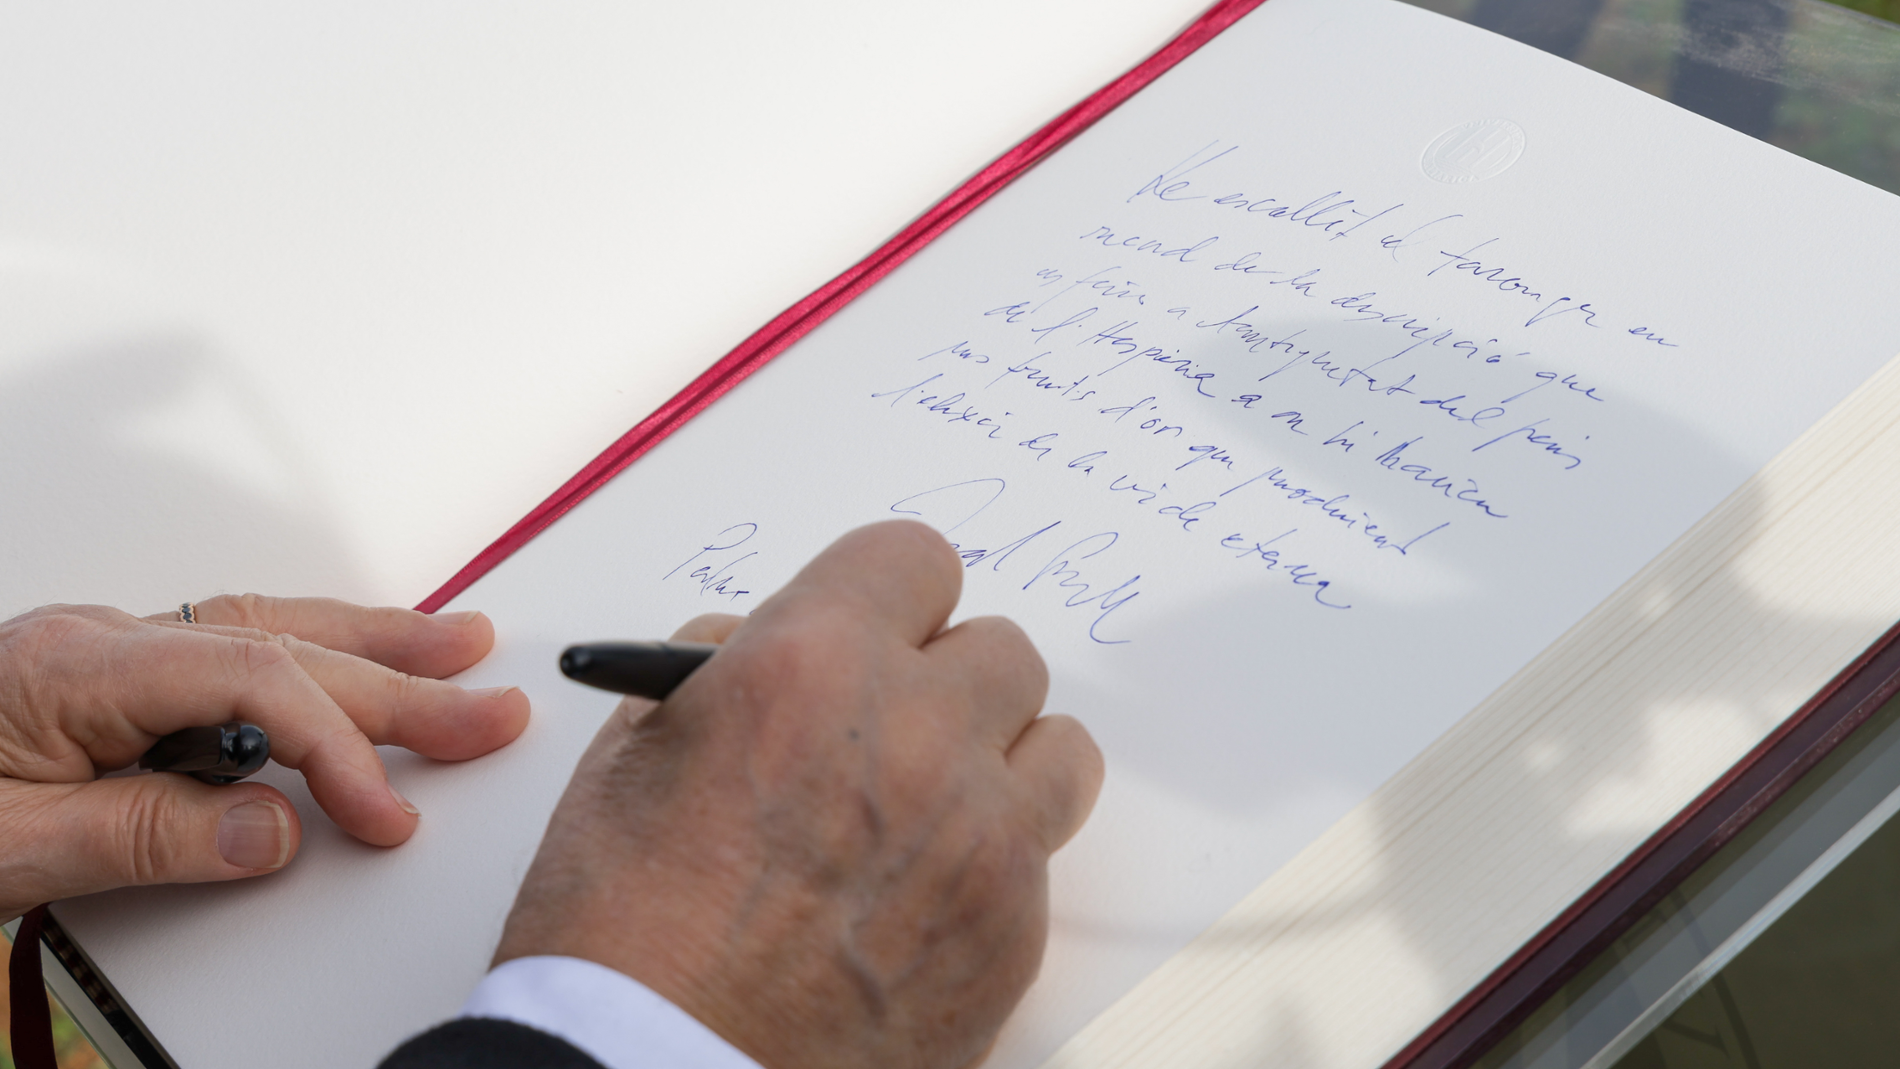 He escollit el taronger en
record de la descripció que
es feia a l'antiguitat del país
de l'Hespèria a on hi havien
uns fruits d'or que produïen
l'elixir de la vida eterna
Palma